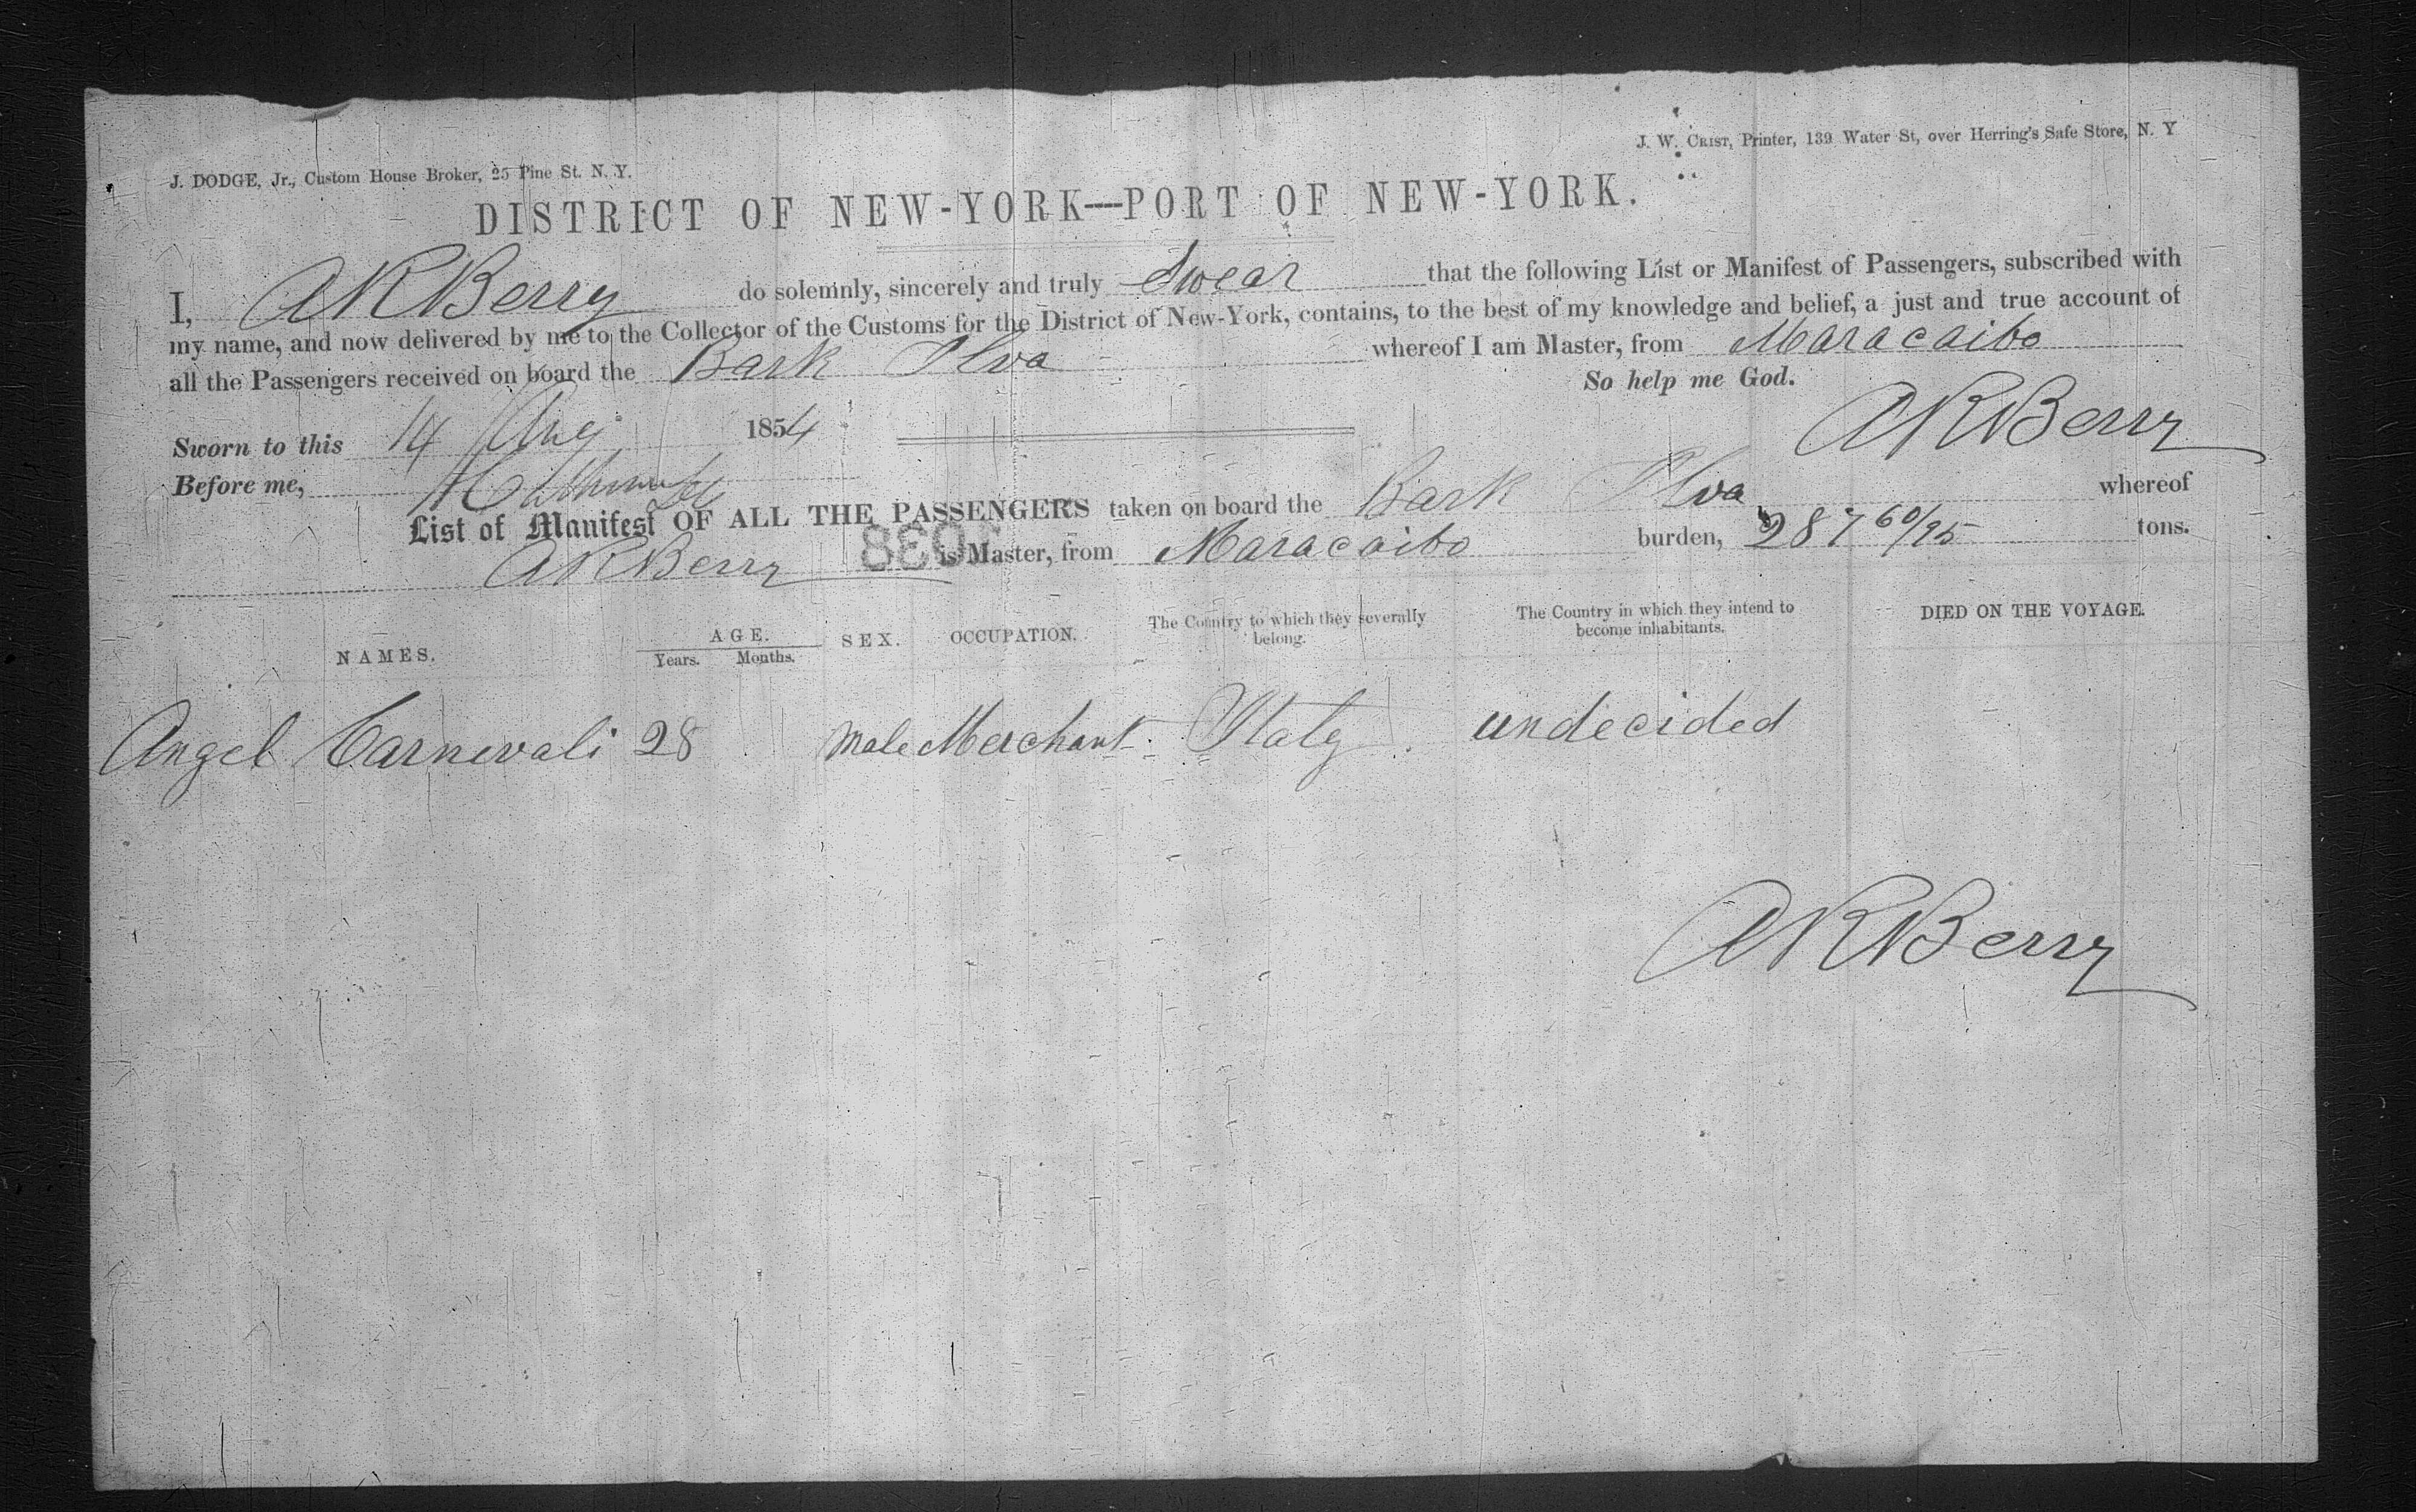 J. W. CRIST, Printer, 139 Water St, over Herring's Safe Store, N. Y
J. DODGE, Jr., Custom House Broker, 25 Pine St. N. Y.
DISTRICT OF NEW-YORK—PORT OF NEW-YORK.
I, A R Berry do solemnly, sincerely and truly Swear that the following List or Manifest of Passengers, subscribed with
my name, and now delivered by me to the Collector of the Customs for the District of New-York, contains, to the best of my knowledge and belief, a just and true account of
all the Passengers received on board the Bark Ilva whereof I am Master, from Maracaibo
So help me God.
Sworn to this 14 Aug 1854 A R Berry
Before me,
List of Manifest OF ALL THE PASSENGERS taken on board the Bark Ilva whereof
A R Berry is Master, from Maracaibo burden, 287 60/95 tons.
NAMES. AGE. Years. Months. SEX. OCCUPATION. The Country to which they severally belong. The Country in which they intend to become inhabitants. DIED ON THE VOYAGE.
Angel Carnevali 28 male Merchant Italy undecided
A R Berry